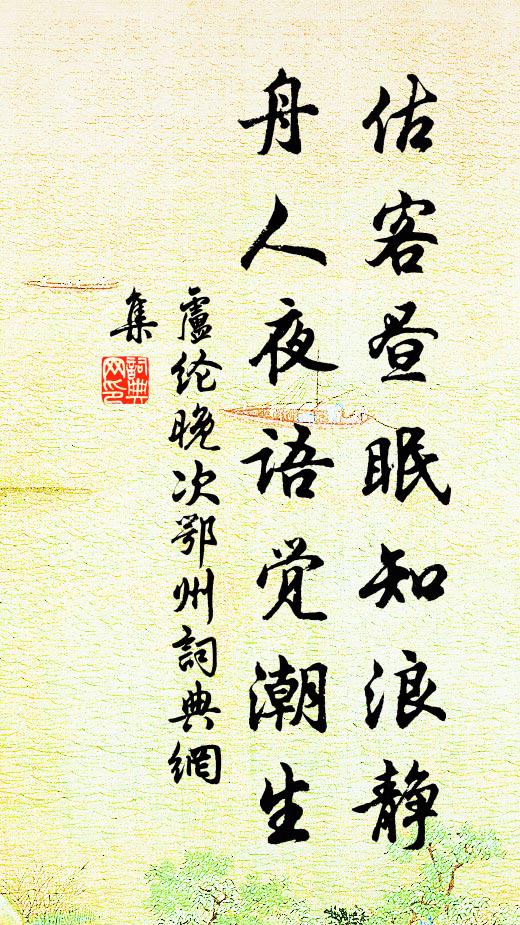 估客昼眠知浪静
舟人夜语觉潮生
盧纶晚次鄂州詞典網
集
詞典
网印